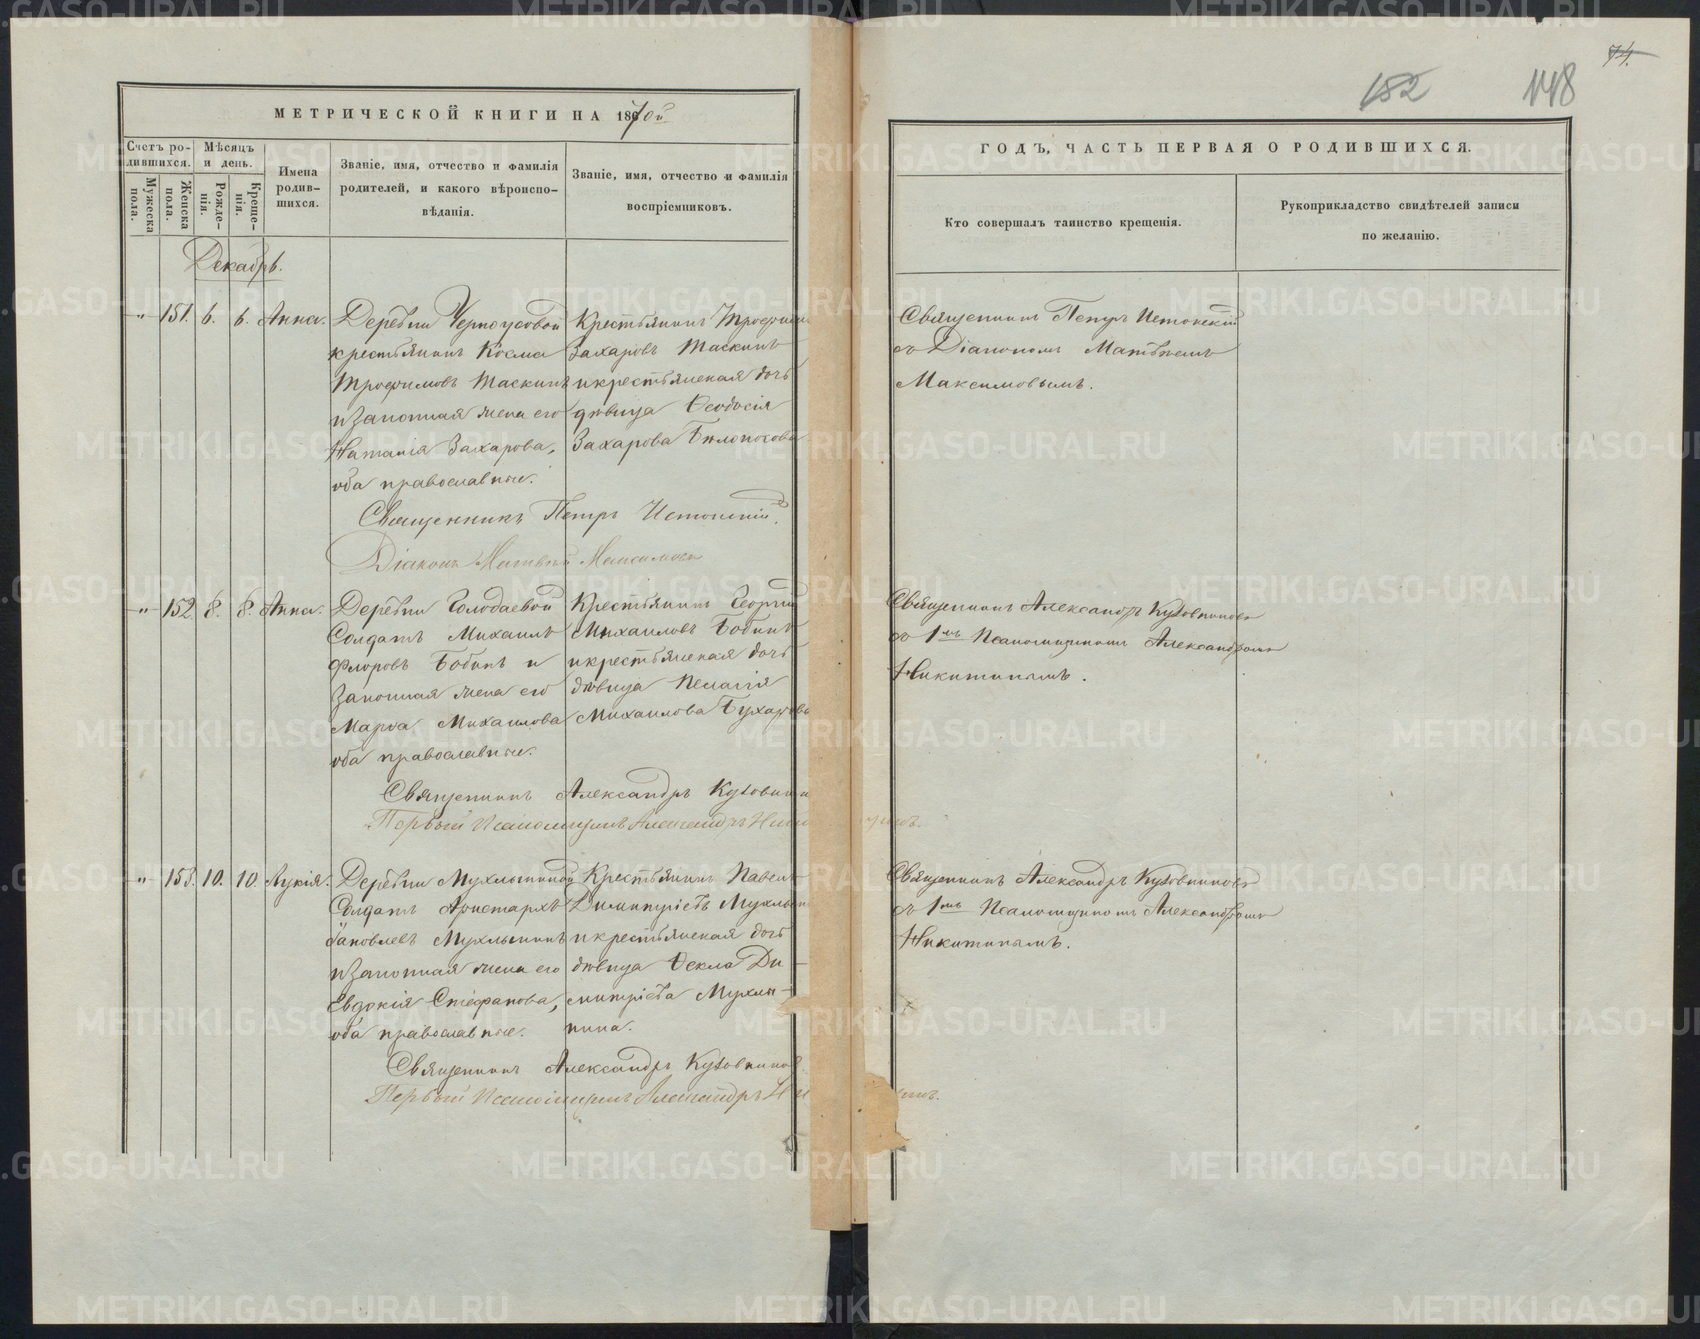 МЕТРИЧЕСКОЙ КНИГИ НА 1870й
Счетъ родившихся.
Мѣсяцъ и день.
Имена родившихся.
Званіе, имя, отчество и фамилія
родителей, и какого вѣроиспо-
вѣданія.
Званіе, имя, отчество и фамилія
воспріемниковъ.
Мужеска пола.
Женска пола.
Рожденія.
Крещенія.
Декабрь.
„ 151. 6. 6. Анна.
Деревни Черноусовой
крестьянинъ Косма
Трофимовъ Таскинъ
и законная жена его
Наталія Захарова,
оба православные.
Крестьянинъ Трофимъ
Захаровъ Таскинъ
и крестьянская дочь
дѣвица Ѳеодосія
Захарова Бѣлоносова
Священникъ Петръ
Діаконъ Матвѣй Максимовъ
„ 152 8. 8. Анна.
Деревни Колодаевой
Солдатъ Михаилъ
Флоровъ Бобинъ и
законная жена его
Марѳа Михаилова
оба православные.
Крестьянинъ Георгій
Михаиловъ Бобинъ
и крестьянская дочь
дѣвица Пелагія
Михаилова Бухарова
Священникъ Александръ Кузовников
Первый Псаломщикъ Александръ Никитинъ.
„ 153. 10. 10 Лукія.
Деревни Мухлыниной
Солдатъ Аристархъ
Яковлевъ Мухлынинъ
и законная жена его
Евдокія Стефанова,
оба православные.
Крестьянинъ Павелъ
Димитріевъ Мухлын
и крестьянская дочь
дѣвица Ѳекла Ди-
митріева Мухлы-
нина.
Священникъ Александръ Кузовников.
Первый Псаломщикъ Александръ Никитинъ.
74.
152 148
ГОДЪ, ЧАСТЬ ПЕРВАЯ О РОДИВШИХСЯ.
Кто совершалъ таинство крещенія.
Рукоприкладство свидѣтелей записи
по желанію.
Священникъ Петръ
съ Діакономъ Матвѣемъ
Максимовымъ.
Священникъ Александръ Кузовниковъ
съ 1мъ Псаломщикомъ Александромъ
Никитинымъ.
Священникъ Александръ Кузовниковъ
съ 1мъ Псаломщикомъ Александромъ
Никитинымъ.
METRIKI.GASO-URAL.RU